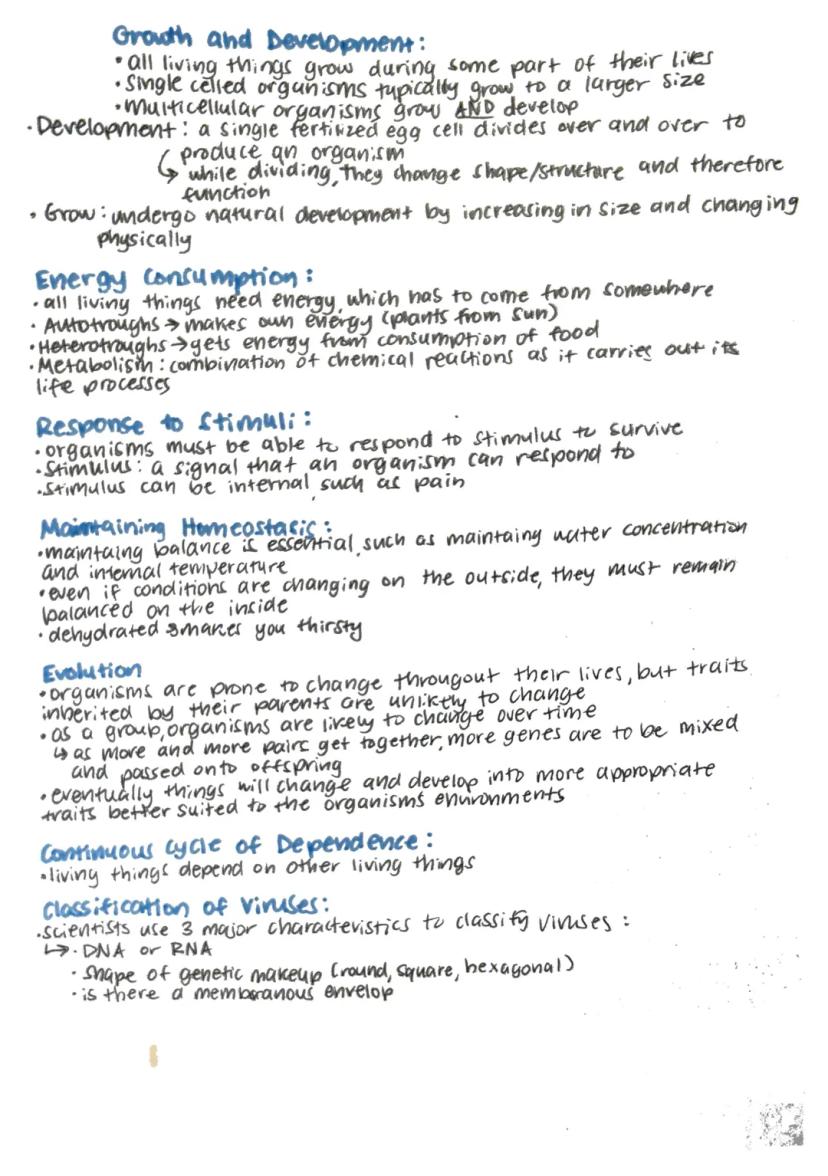 Growth and Development:
• all living things grow during some part of their lives
• single celled organisms typically grow to a larger size
• multicellular organisms grow AND develop
• Development: a single fertilized egg cell divides over and over to
produce an organism
↳ while dividing, they change shape/structure and therefore
function
• Grow: undergo natural development by increasing in size and changing
physically
Energy Consumption:
• all living things need energy, which has to come from somewhere
• Autotroughs → makes own energy (plants from sun)
• Heterotroughs → gets energy from consumption of food
• Metabolism: combination of chemical reactions as it carries out its
life processes
Response to Stimuli:
• organisms must be able to respond to stimulus to survive
• Stimulus: a signal that an organism can respond to
• stimulus can be internal such as pain
Maintaining Homeostasis:
• maintaing balance is essential, such as maintaing water concentration
and internal temperature
• even if conditions are changing on the outside, they must remain
balanced on the inside
• dehydrated → makes you thirsty
Evolution
• organisms are prone to change througout their lives, but traits
inherited by their parents are unlikely to change
• as a group, organisms are likely to change over time
↳ as more and more pairs get together, more genes are to be mixed
and passed onto offspring
• eventually things will change and develop into more appropriate
traits better suited to the organisms environments
Continuous Cycle of Dependence:
• living things depend on other living things
Classification of Viruses:
• scientists use 3 major characteristics to classify viruses:
↳ • DNA or RNA
• shape of genetic makeup (round, square, hexagonal)
• is there a membranous envelop